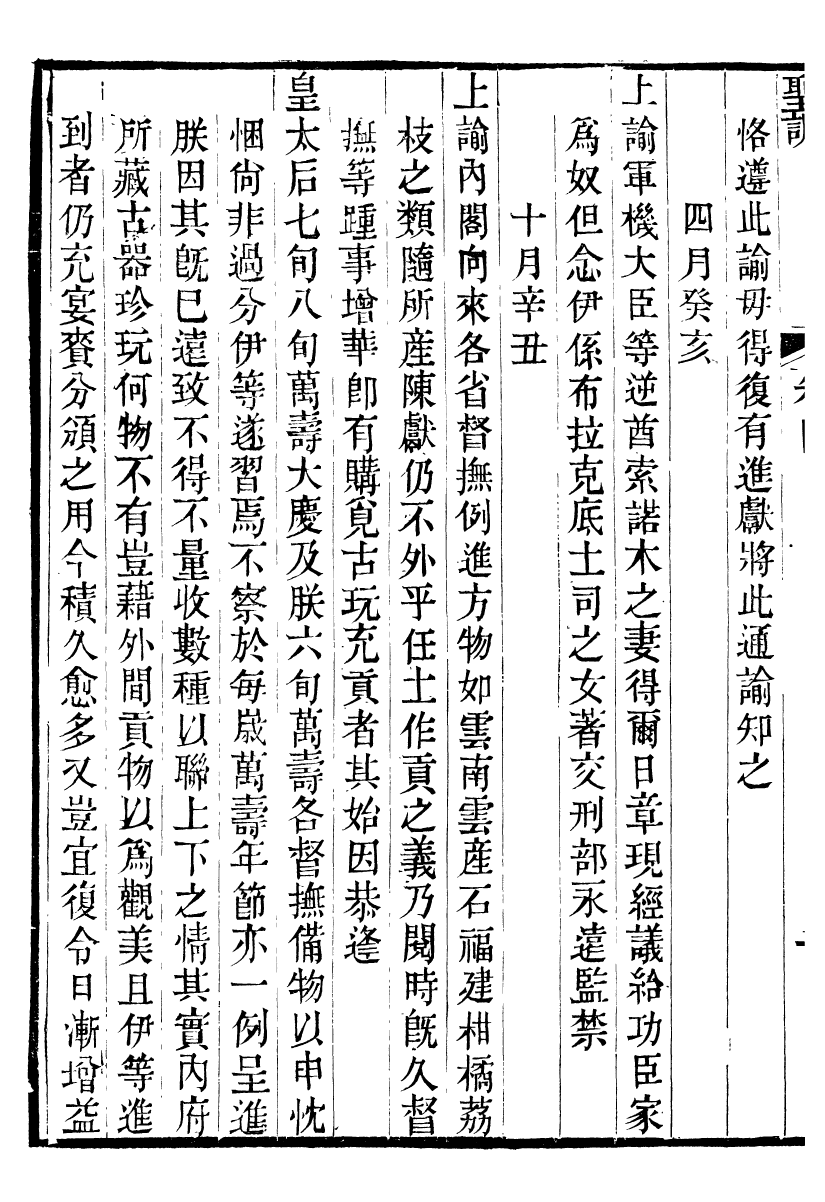 聖訓
恪遵此諭毋得復有進獻將此通諭知之
四月癸亥
上諭軍機大臣等逆酋索諾木之妻得爾日章現經議給功臣家
爲奴但念伊係布拉克底土司之女著交刑部永遠監禁
十月辛丑
上諭內閣向來各省督撫例進方物如雲南雲產石福建柑橘荔
枝之類隨所產陳獻仍不外乎任土作貢之義乃閱時旣久督
撫等踵事增華卽有購覓古玩充貢者其始因恭逢
皇太后七旬八旬萬壽大慶及朕六旬萬壽各督撫備物以申忱
悃尙非過分伊等遂習焉不察於每歲萬壽年節亦一例呈進
朕因其旣已遠致不得不量收數種以聯上下之情其實內府
所藏古器珍玩何物不有豈藉外間貢物以爲觀美且伊等進
到者仍充宴賚分頒之用今積久愈多又豈宜復令日漸增益